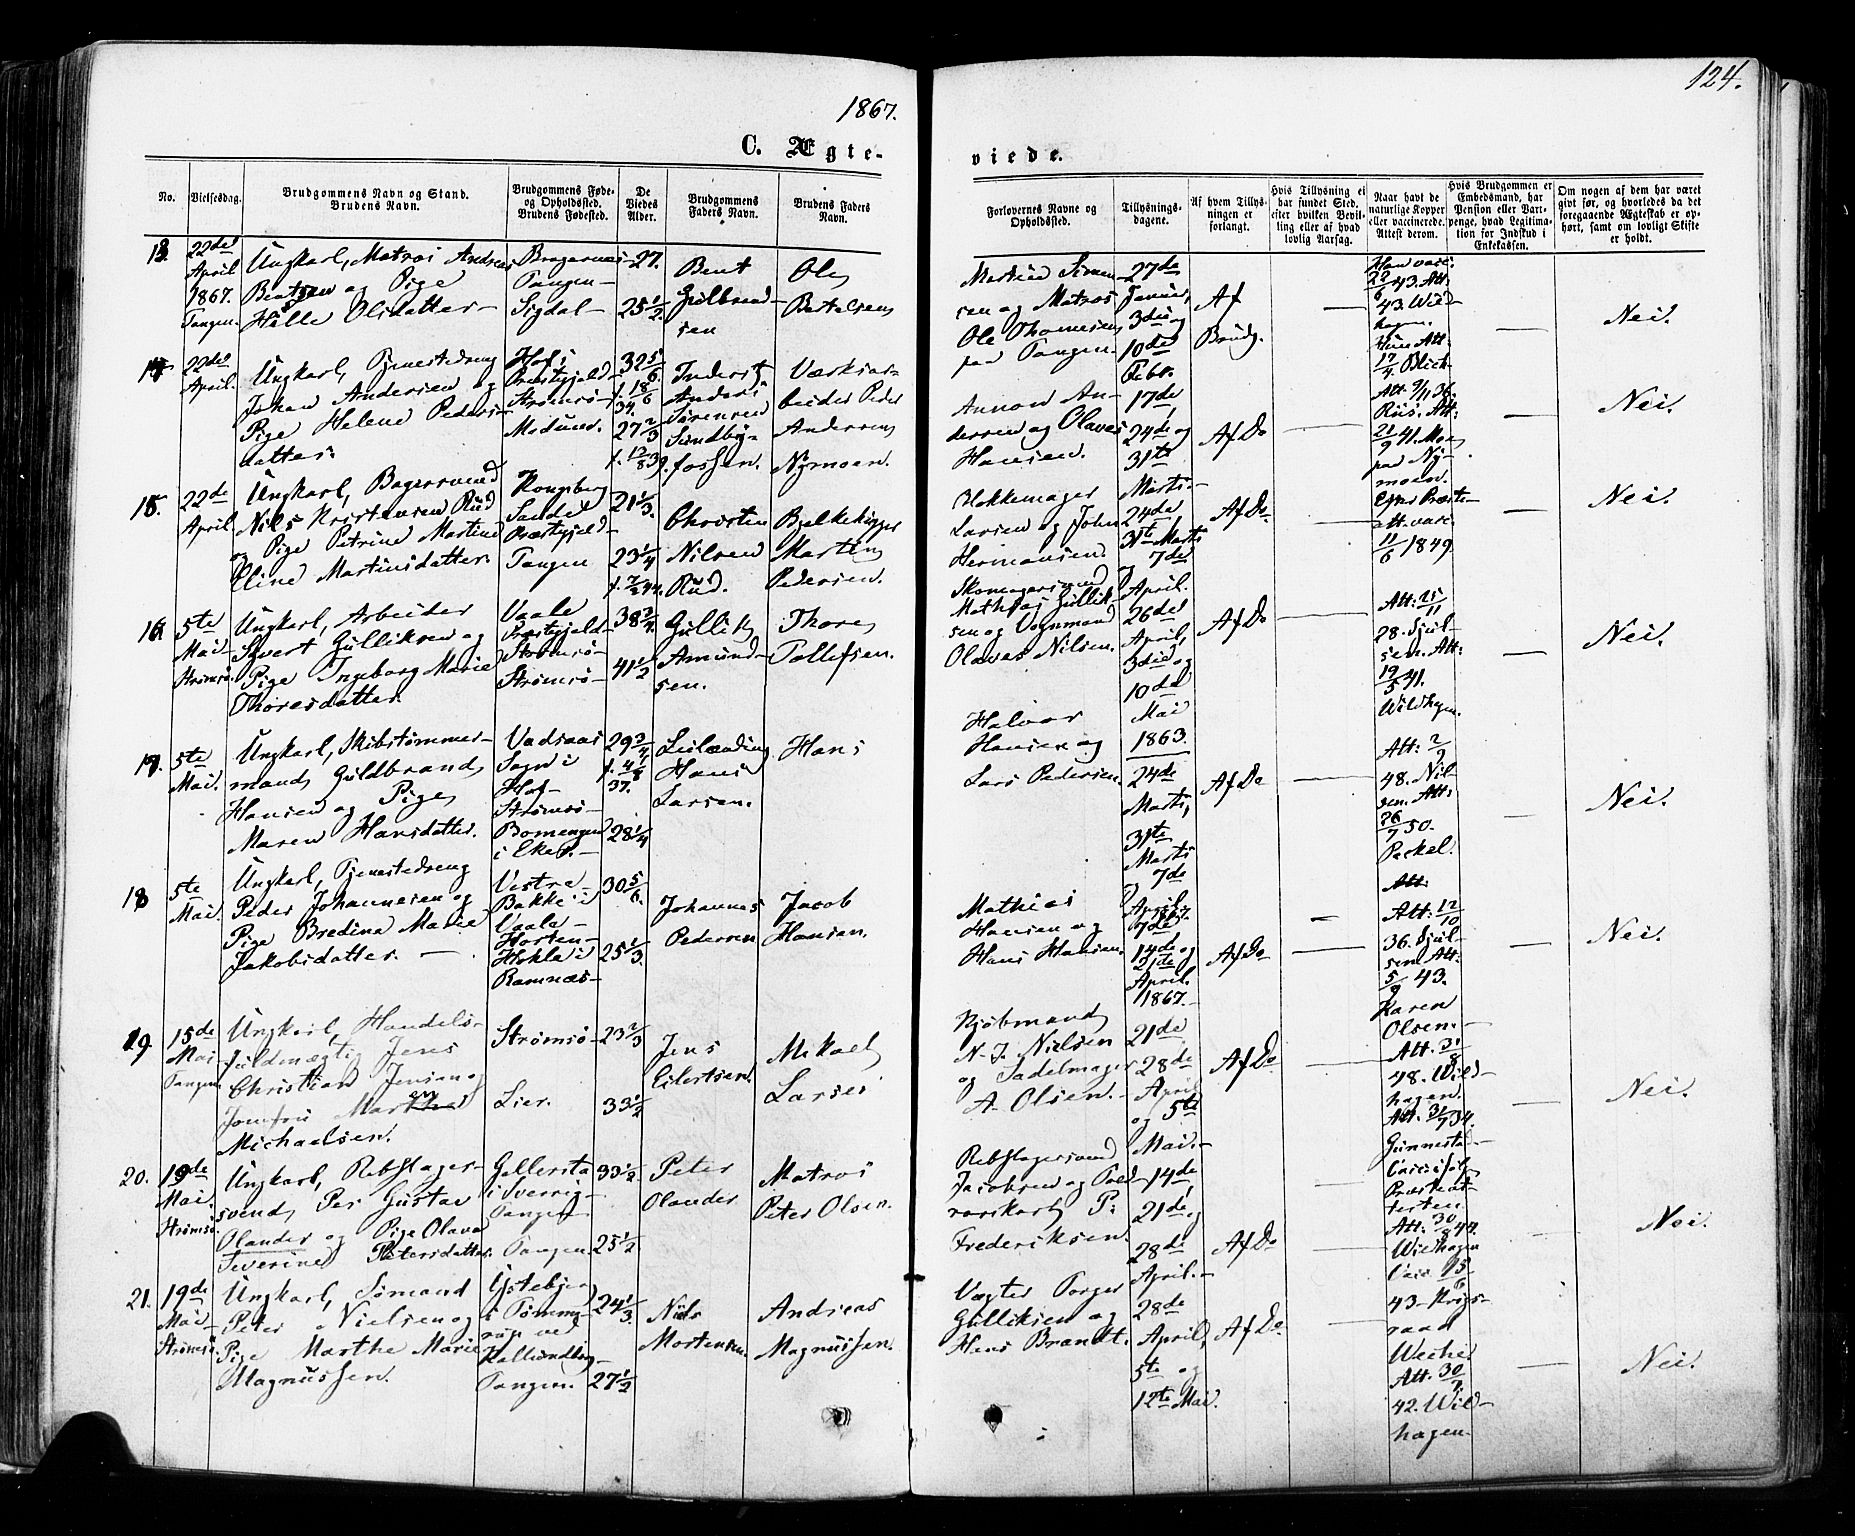 1867.
124.
C. Ægte-
viede.
No.
Vielsesdag.
Brudgommens Navn og Stand.
Brudens Navn.
Brudgommens Føde-
og Opholdssted.
Brudens Fødested.
De
Viedes
Alder.
Brudgommens
Faders Navn.
Brudens Faders
Navn.
Forlovernes Navne og
Opholdssted.
Tillysnings-
dagene.
Af hvem Tillys-
ningen er
forlangt.
Hvis Tillysning ei
har fundet Sted,
efter hvilken Bevil-
ling eller af hvad
lovlig Aarsag.
Naar havt de
naturlige Kopper
eller vaccinerede.
Attest derom.
Hvis Brudgommen er
Embedsmand, har
Pension eller Vart-
penge, hvad Legitima-
tion for Indskud i
Enkekassen.
Om nogen af dem har været
givt før, og hvorledes da det
foregaaende Ægteskab er op-
hørt, samt om lovligt Skifte
er holdt.
13.
22de
April
1867.
Tangen.
Ungkarl, Matros Andreas
Bentsen og Pige
Hælle Olsdatter
Bragernes
Tangen
Sigdal
27.
25 1/2
Bent
Gulbrand-
sen
Ole
Bertelsen
sen og Matros
Ole Thomesen
paa Tangen.
27de
Januar,
3die og
10de
Febr.
Af
Brudg.
Nei.
14.
22de
April.
Ungkarl, Tjenestedreng
Johan Andersen og
Pige Helene Peders-
datter.
Hofs
Præstegjeld
Strømsø
Modum.
32 5/6
f. 18/6
34.
27 2/3
Anders
Sørensen
Sundby-
fossen.
Værksar-
beider Peder
Andersen
Nymoen.
Annon An-
dersen og Olaves
Hansen.
17de
24de og
31te
Marts.
Af Do
Att. 9/1 36.
Riis. Att:
21/9 41. Moe
paa Ny-
moen.
Nei.
15.
22de
April.
Ungkarl, Bagersvend
Nils Kristensen Rud
og Pige Petrine Martine
Eline Martinsdatter.
Kongsberg
Sandel
Præstegjeld
Tangen
21 1/3.
23 1/4
Christen
Nilsen
Rud.
Bjelkehugger
Martin
Pedersen.
Blokkemager
Larsen og John
Hermansen
24de
31te Marts
7de
April.
Af Do
att. vacc.
11/6 1849.
Nei.
16.
5te
Mai
Strømsø.
Ungkarl, Arbeider
Syvert Gulliksen og
Pige Ingeborg Marie
Thoresdatter.
Vaale
Præstegjeld
Strømsø
Strømsø
38 3/4.
41 1/2
Gullik
Amund-
sen.
Thore
Tollefsen.
Skomagersvend
Mathias Gullik-
sen og Vognmand
Olaves Nilsen.
26de
April,
3die og
10de
Mai
1863.
Af Do
Att: 25/11
28. Sjul-
sen. Att:
19/5 41.
Wildhagen.
Nei.
17.
5te
Mai.
Ungkarl, Skibstømmer-
mand Guldbrand
Hansen og Pige
Maren Hansdatter.
Vadsaas
Sogn i
Hof
Strømsø
i Eker.
29 3/4
f. 4/8
37.
28 1/4
Leilænding
Hans
Larsen.
Hans
Halvor
Hansen og
Lars Pedersen.
24de
Marts,
31te
Marts
7de
April
1867.
Af Do
Att: 2/9
48. Nil-
sen. Att:
26/7 50.
Peckel.
Nei.
18
5te
Mai.
Ungkarl, Tjenestedreng
Peder Johannesen og
Pige Bredine Marie
Jakobsdatter.
Vestre
Bakke i
Vaale
Horten
Hekla i
Ramnæs
30 5/6.
25 1/3.
Johannes
Pedersen
Jacob
Hansen.
Mathias
Hansen og
Hans Hansen.
7de
14de og
21de
April.
1867.
Af Do
Att:
Att: 12/10
36. Sjul-
sen Att:
5/9 43.
Karen
Olsen.
Nei.
19
15de
Mai
Tangen
Ungkarl, Handels-
fuldmægtig Jens
Christian Jensen og
Jomfru Maren
Michaelsen.
Strømsø
Lier.
23 2/3
33 1/2
Jens
Eilertsen.
Mikael
Larsen
Kjøbmand
N. J. Nielsen
og Sadelmager
A. Olsen.
21de
28de
April
og 5te
Mai.
Af Do
Att. 31/8
48. Wild-
hagen.
Att. 31/7 34.
Gunnestad
Nei.
20.
19de
Mai
Strømsø
Ungkarl, Rebslager-
svend, Per Gustav
Olander og Pige Olava
Severine Petersdatter.
Gellersta
i Sverrig
Tangen.
Tangen
33 1/2.
25 1/2
Peter
Olander
Matros
Peter Olsen.
Rebslagersvend
Jacobsen og Told-
P:
Frederiksen.
14de
21de og
28de
April.
Af Do
Att: 30/8 44.
Wildhagen
Nei.
21.
19de
Mai
Strømsø
Ungkarl, Sømand
Peter Nielsen og
Pige Marthe Marie
Magnussen.
i Tømme-
rup ved
Kallundborg
Tangen.
24 1/3
27 1/2
Niels
Mortensen.
Andreas
Magnussen.
Vægter Torger
Gulliksen og
Hans Brandt.
28de
April,
5te og
12te Mai.
Af Do
Vacc 15/6
43. Krigs-
raad
Att: 30/7
42. Wild-
hagen.
Nei.